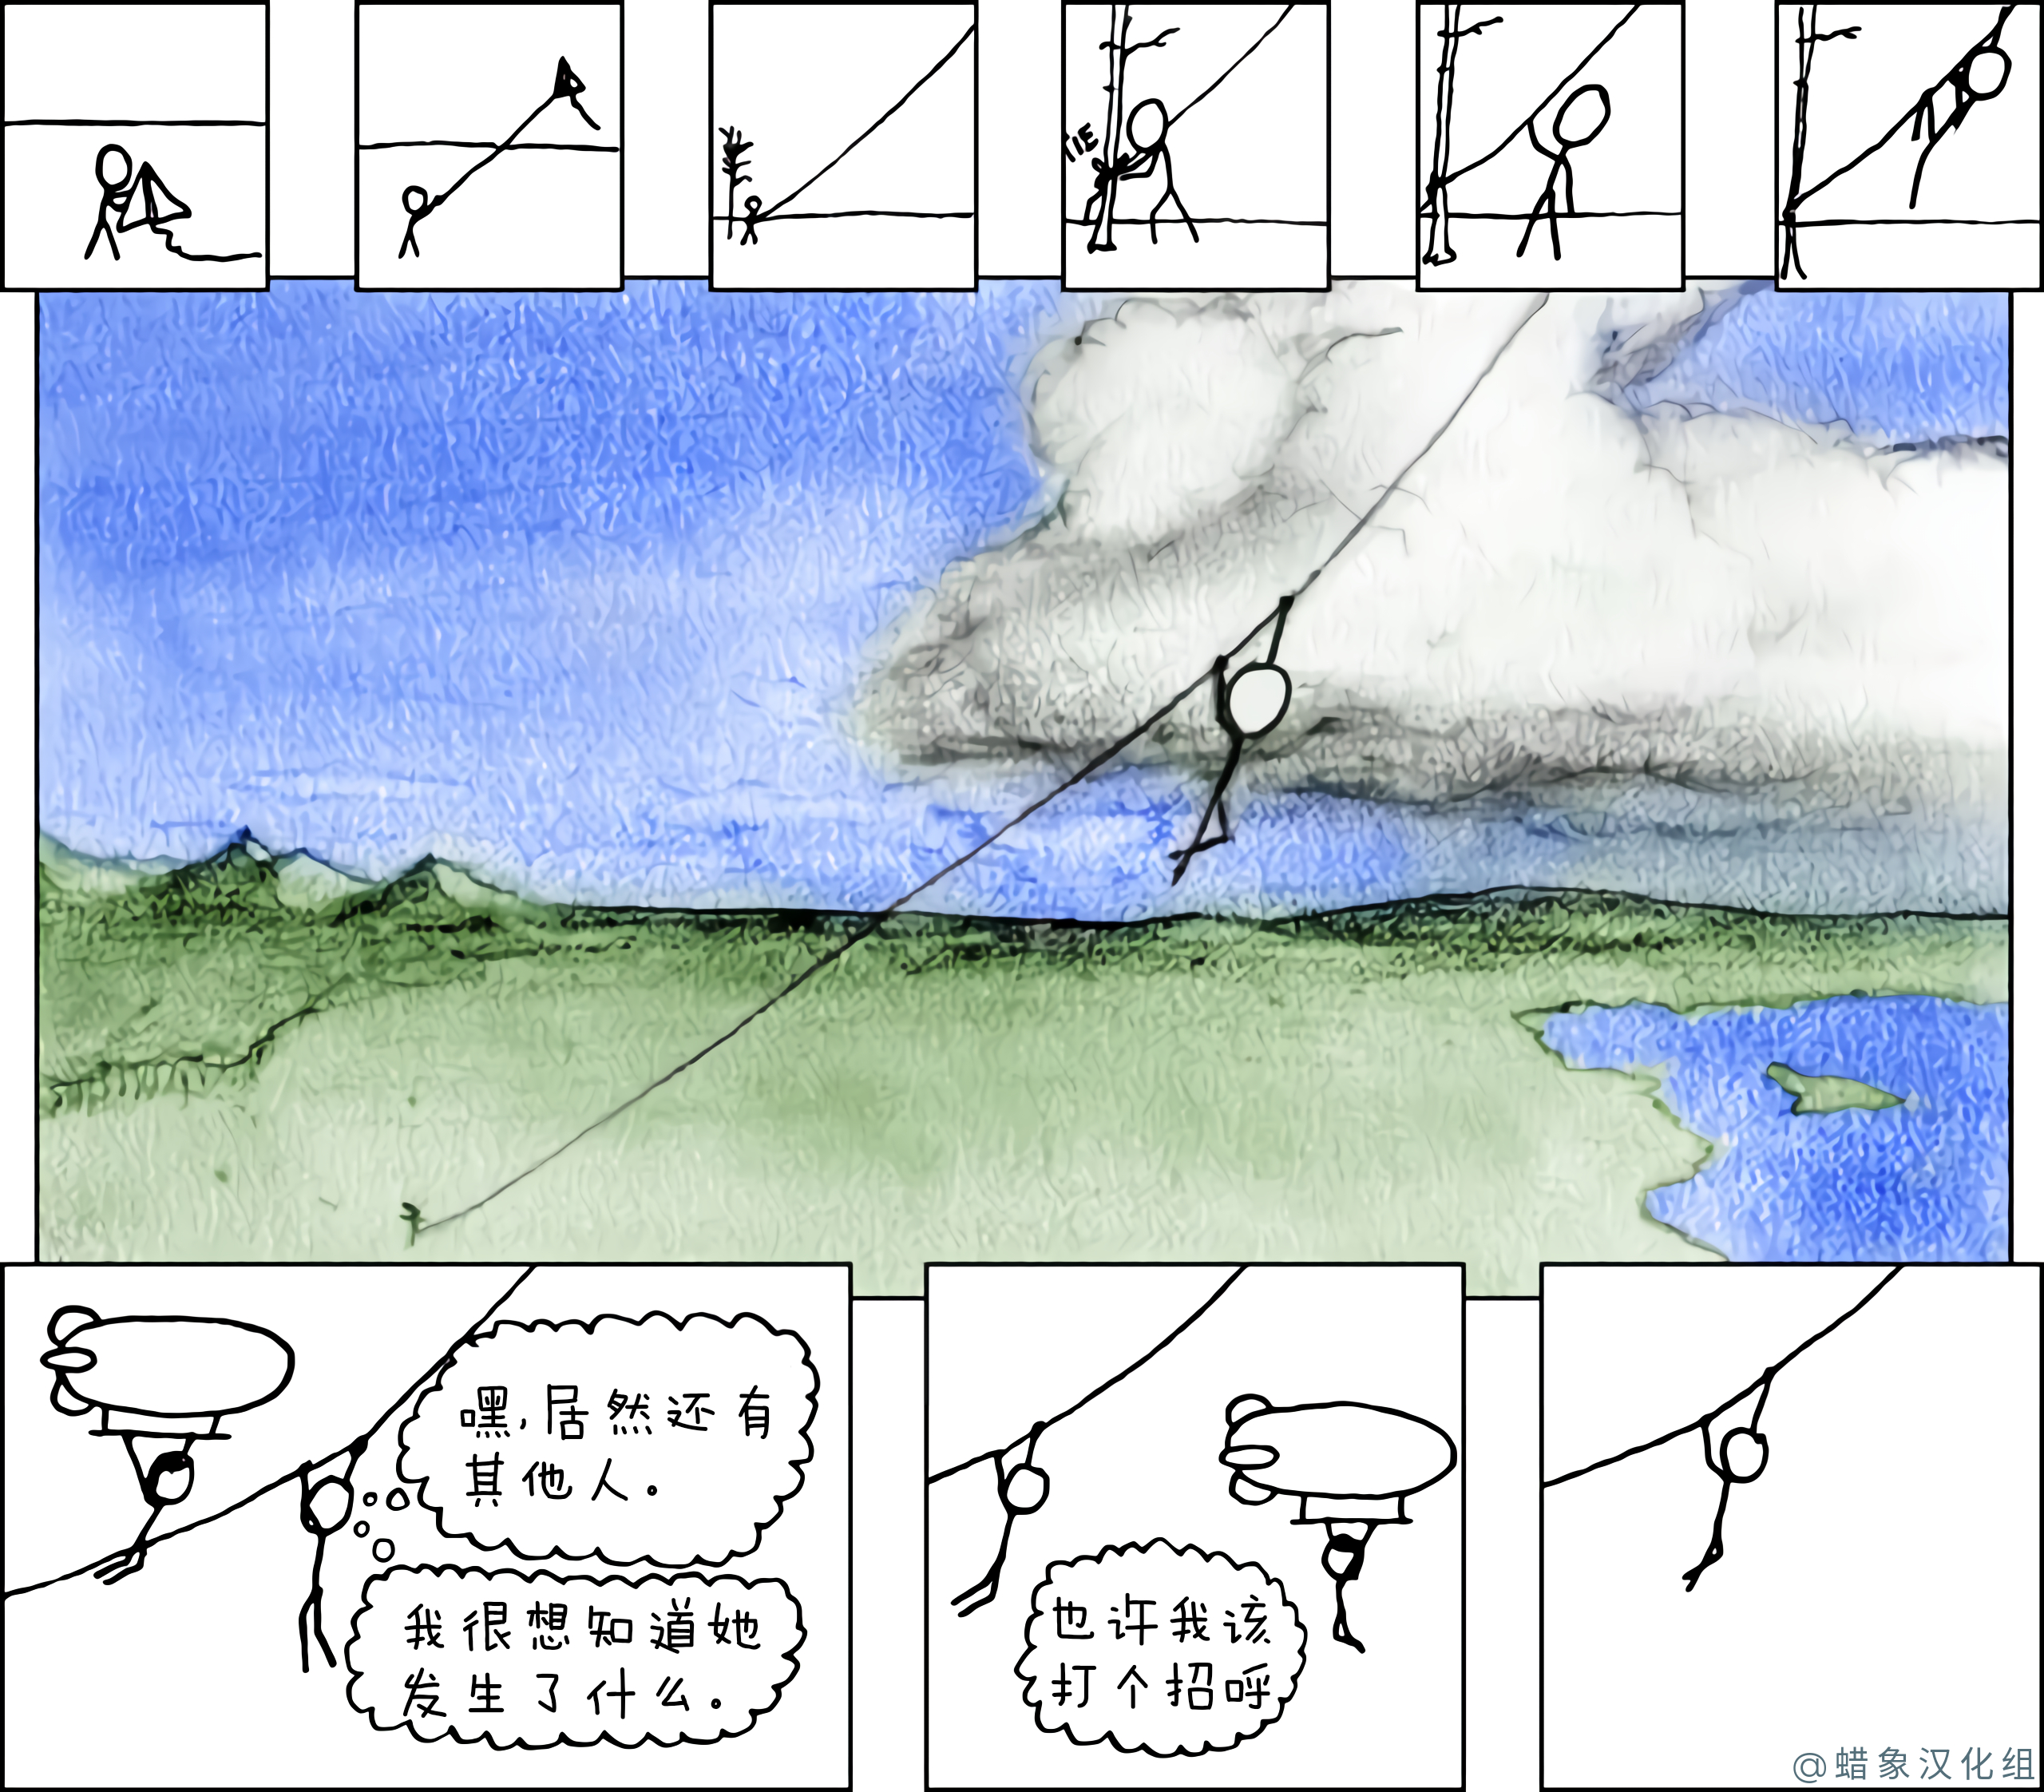 嘿，居然还有
其他人。
我很想知道她
发生了什么。
也许我该
打个招呼
TIE
@蜡象汉化组